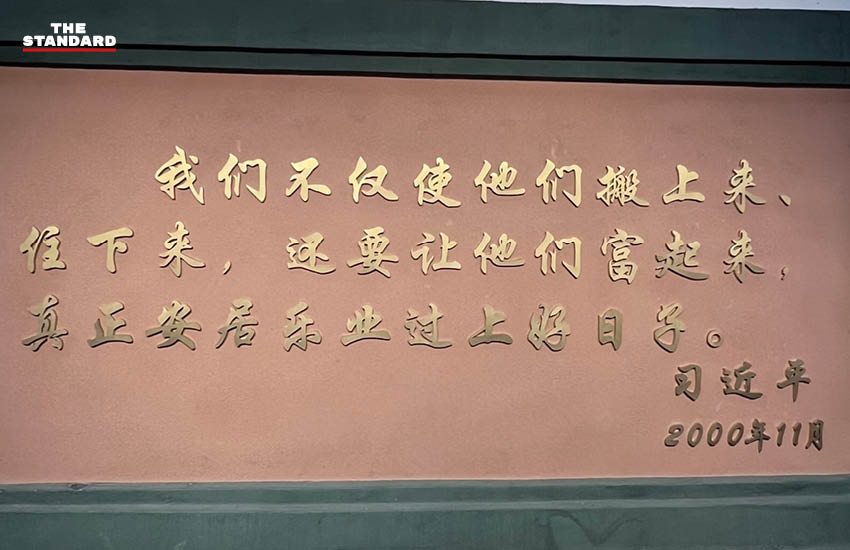 THE
STANDARD
我们不仅使他们搬上来、
住下来，还要让他们富起来，
真正安居乐业过上好日子。
习近平
2000年11月